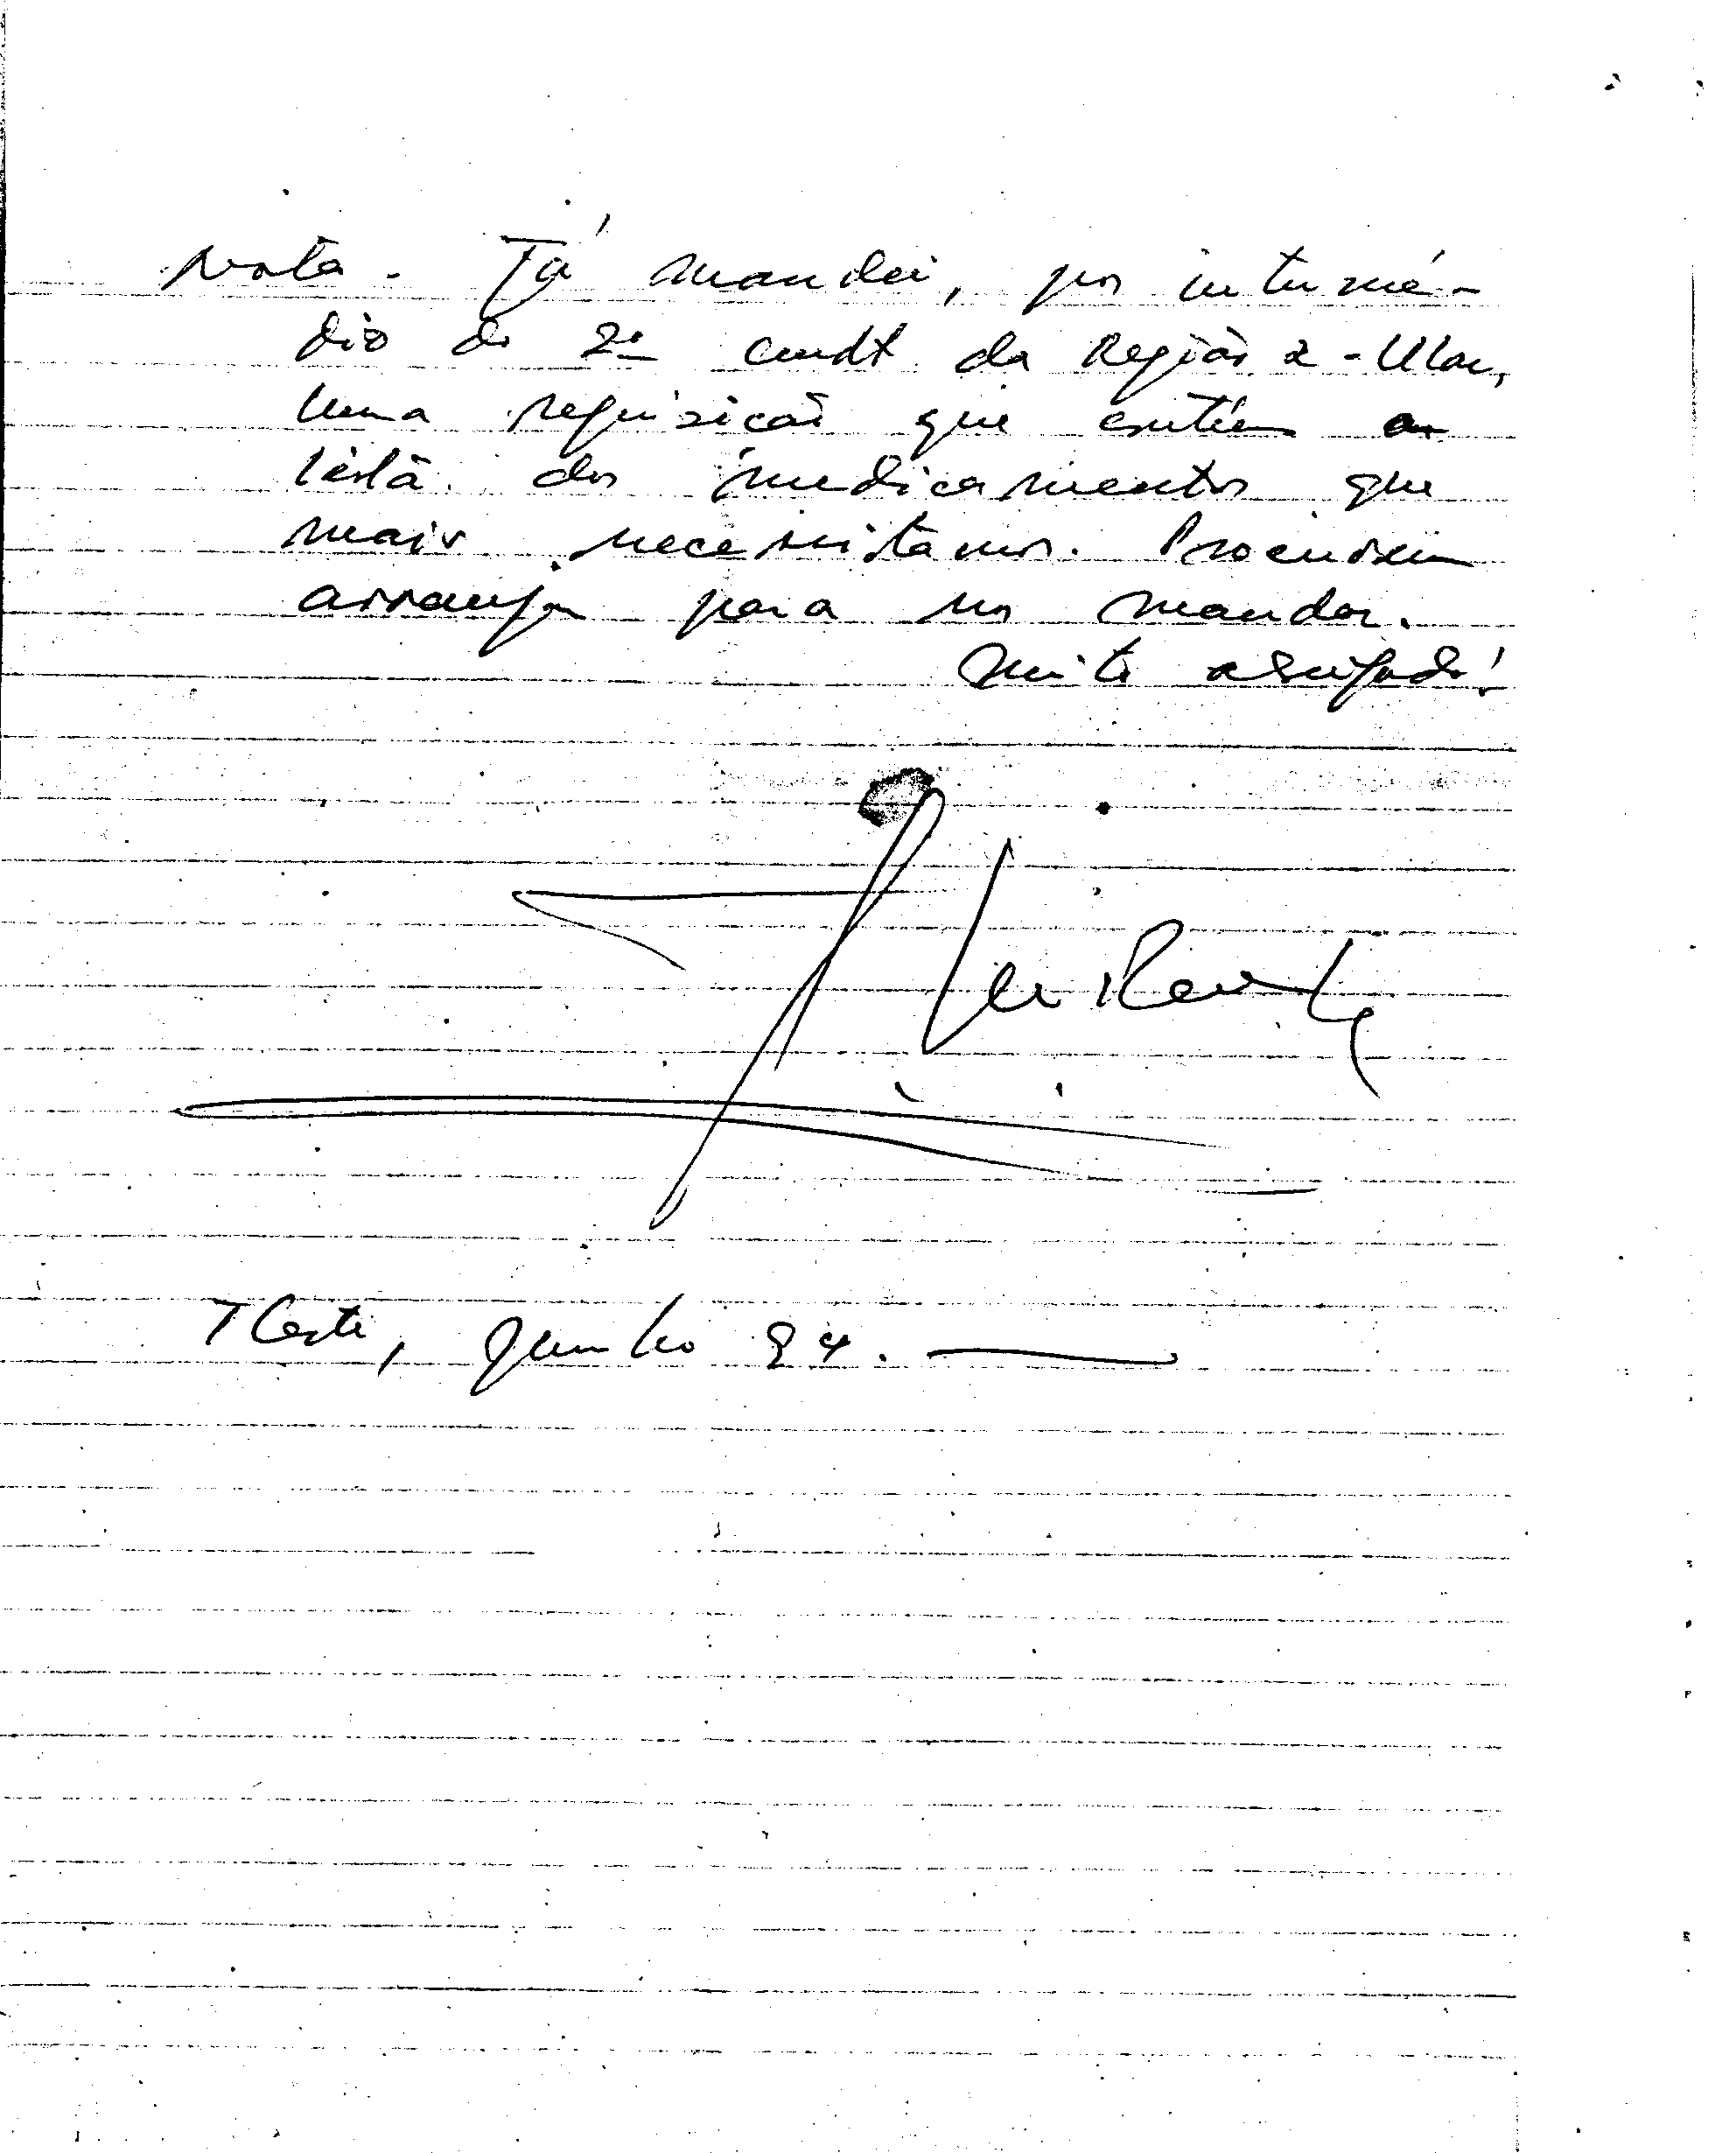 Nota - Já mandei, por intermé-
dio do 2º cmdt da Região 2 -
uma requisição que contém a
lista dos medicamentos que
mais necessitamos. Procurem
arranjar para nos mandar.
Muito obrigado!
TLeste, Junho 84.